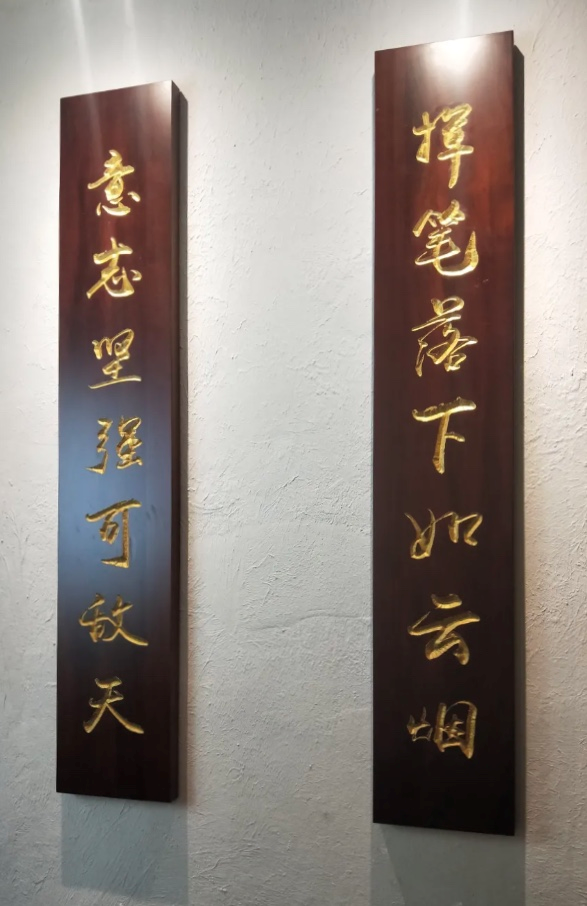 挥笔落下如云烟
意志坚强可敌天